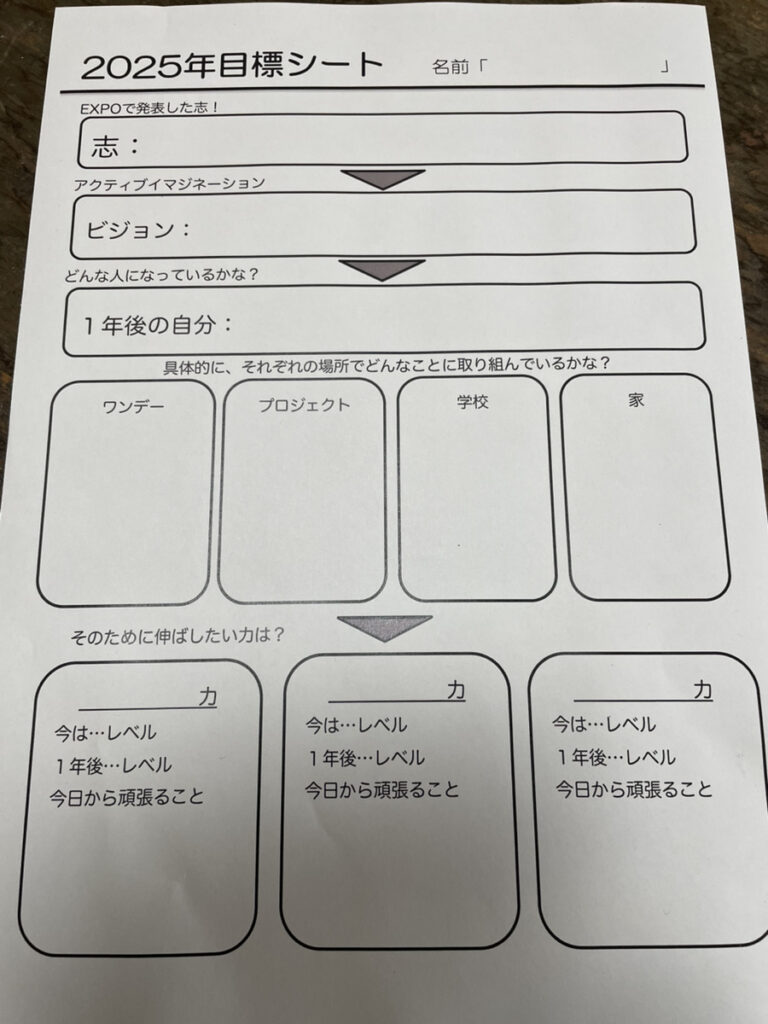 2025年目標シート 名前「 」
EXPOで発表した志！
志：
アクティブイマジネーション
ビジョン：
どんな人になっているかな？
１年後の自分：
具体的に、それぞれの場所でどんなことに取り組んでいるかな？
ワンデー
プロジェクト
学校
家
そのために伸ばしたい力は？
力
今は…レベル
１年後…レベル
今日から頑張ること
力
今は…レベル
１年後…レベル
今日から頑張ること
力
今は…レベル
１年後…レベル
今日から頑張ること